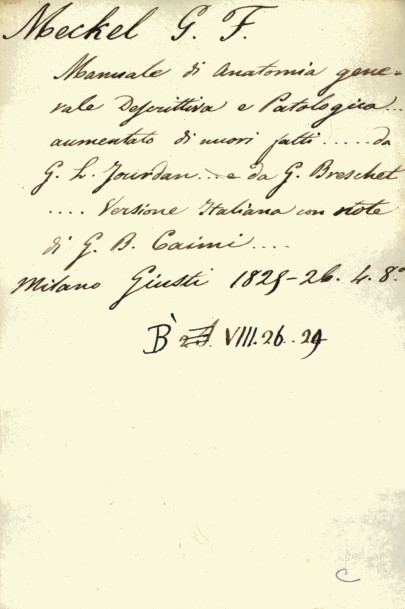 Meckel G. F.
Manuale di Anatomia gene-
rale Descrittiva e Patologica...
aumentato di nuovi fatti ..... da
G. L. Jourdan... e da G. Breschet
.... Versione Italiana con note
di G. B. Caimi ....
Milano Giusti 1825-26. 4. 8.º
B` VIII. 26. 29
C